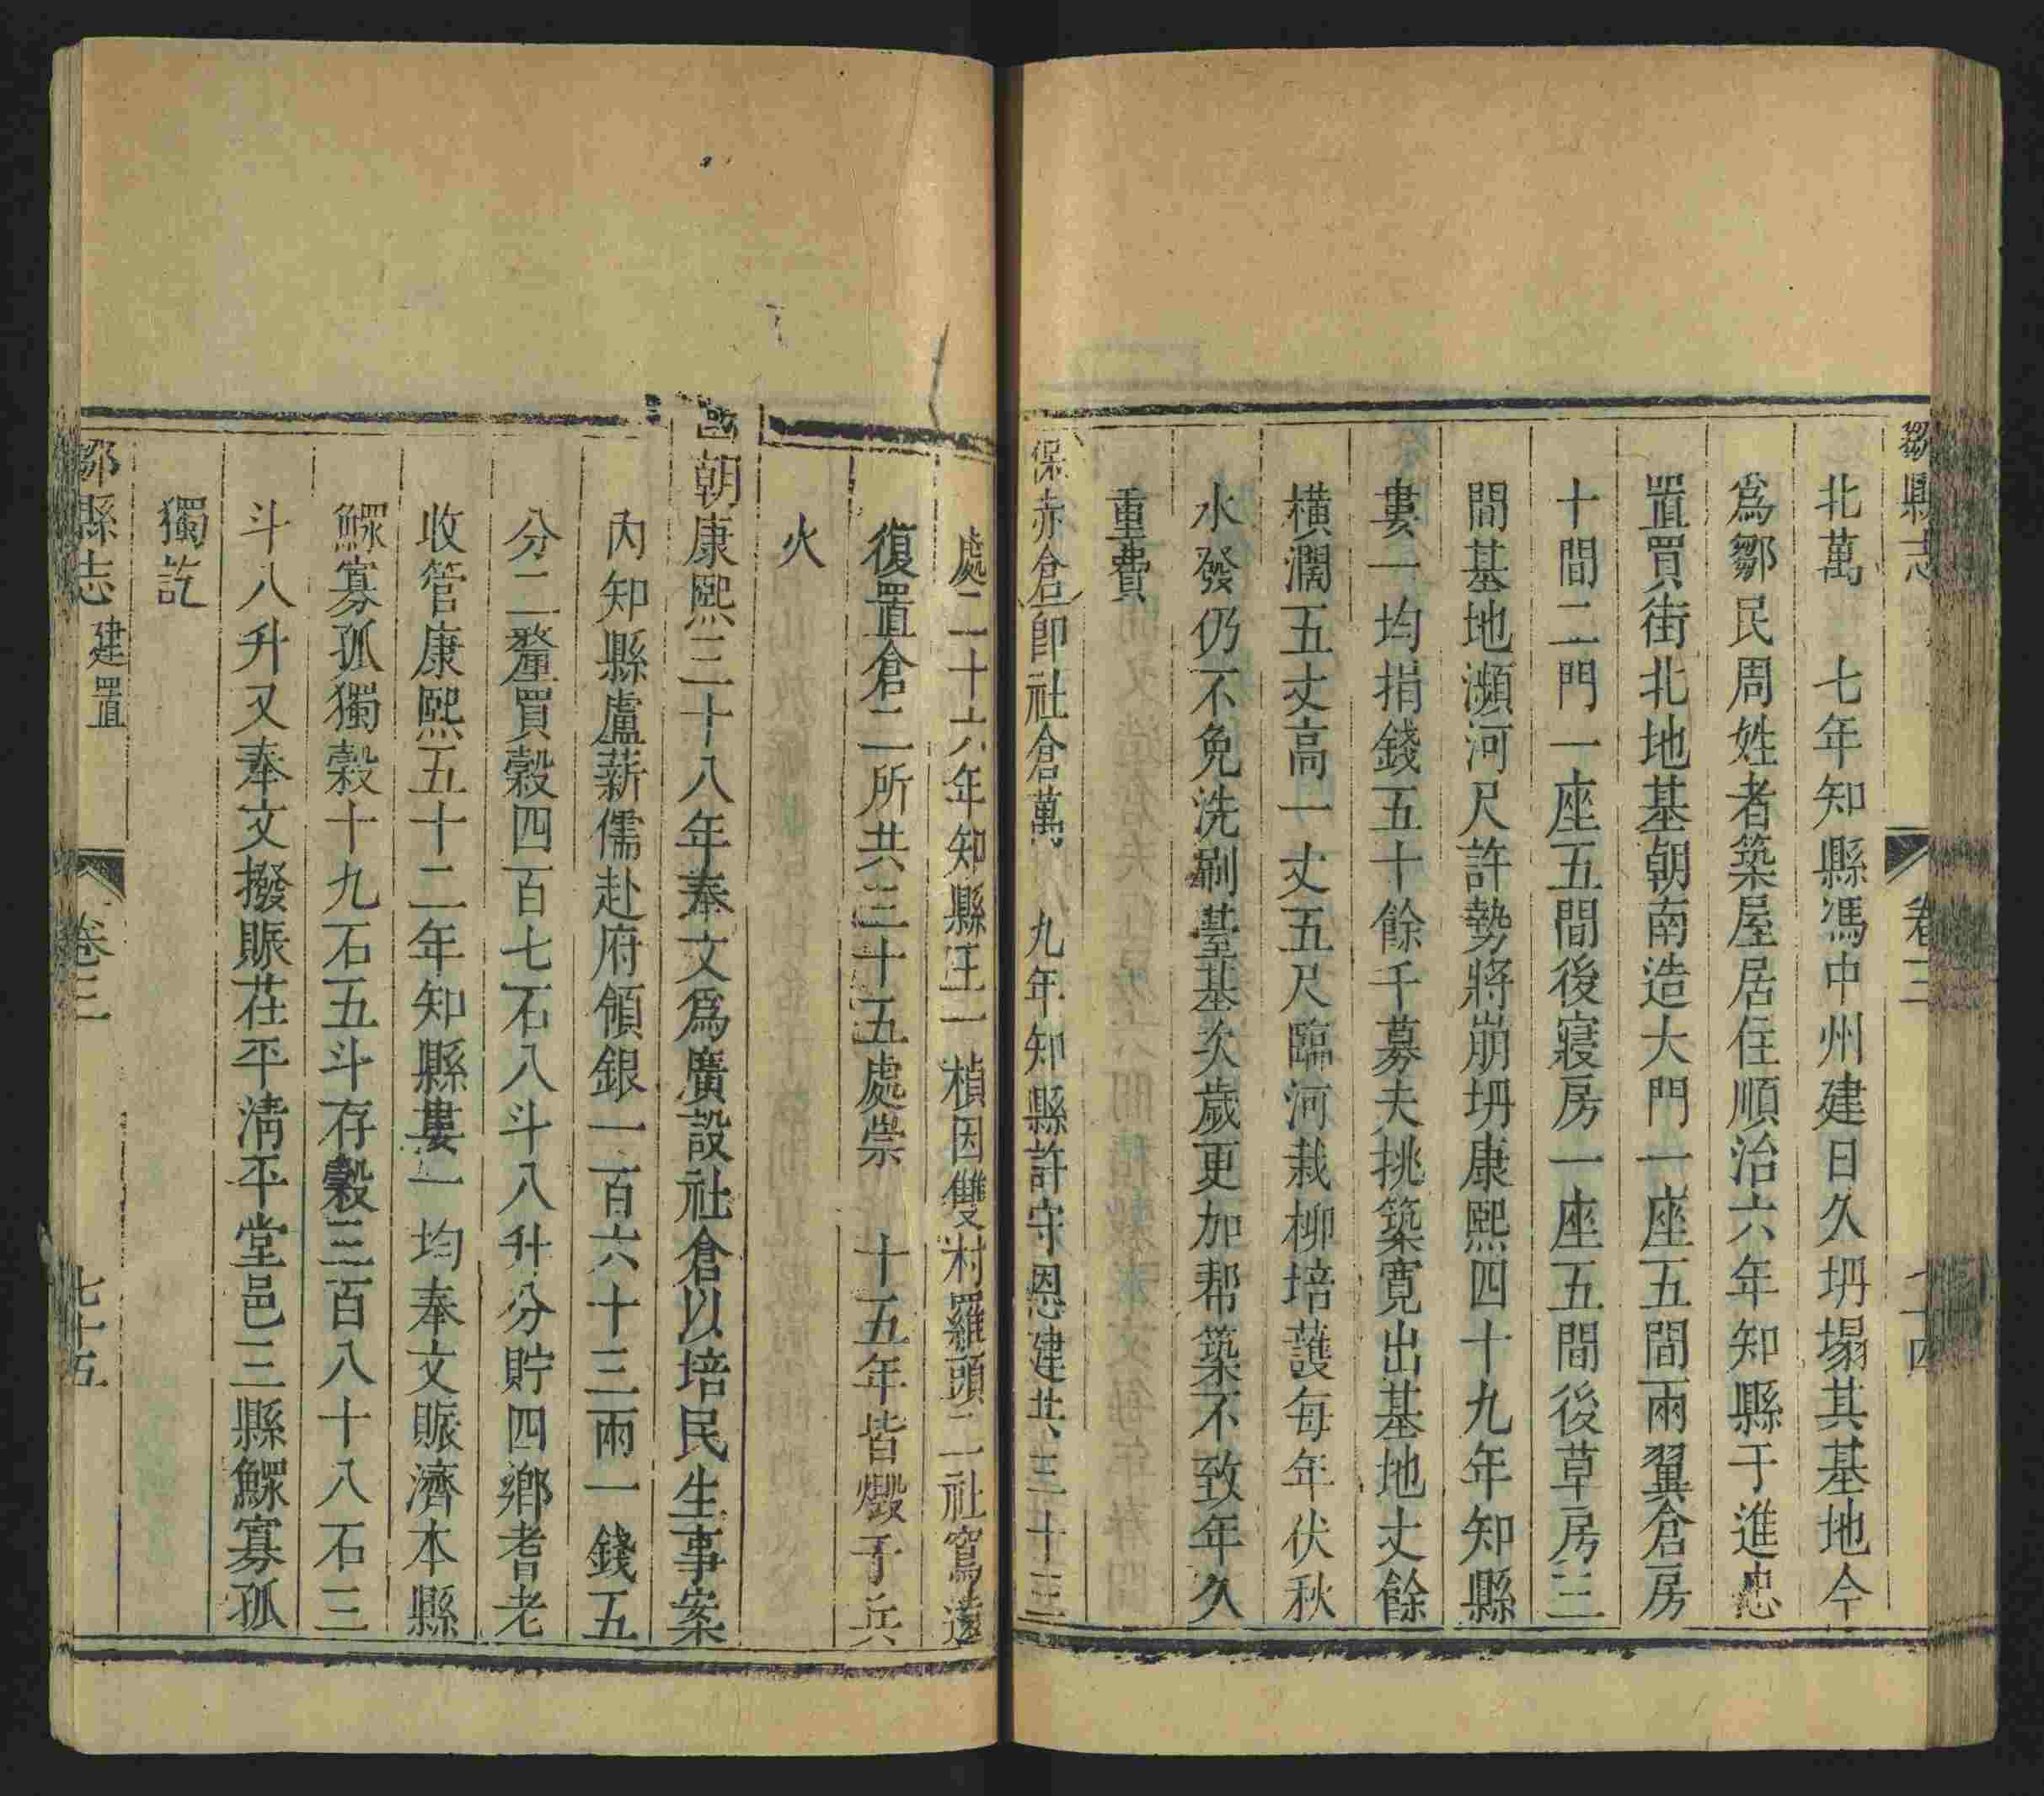 鄒縣志
卷三
北萬　七年知縣馮中州建日久坍塌其基地今
為鄒民周姓者築屋居住順治六年知縣于進忠
置買街北地基朝南造大門一座五間兩翼倉房
十間二門一座五間後寢房一座五間後草房三
間基地瀕河尺許勢將崩坍康熙四十九年知縣
婁一均捐錢五十餘千募夫挑築寬出基地丈餘
橫濶五丈高一丈五尺臨河栽柳培護每年伏秋
水發仍不免洗刷基址次歲更加帮築不致年久
重費
保赤倉即社倉萬　九年知縣許守恩建共三十三
處二十六年知縣王一楨因雙村羅頭二社窵遠
復置倉二所共三十五處崇　十五年皆燬于兵
火
國朝康熙三十八年奉文為廣設社倉以培民生事案
內知縣盧薪儒赴府領銀一百六十三兩一錢五
分二釐買穀四百七石八斗八升分貯四鄉耆老
收管康熙五十二年知縣婁一均奉文賑濟本縣
鰥寡孤獨穀十九石五斗存穀三百八十八石三
斗八升又奉文撥賑茌平清平堂邑三縣鰥寡孤
獨訖
鄒縣志　建置　卷三　七十五